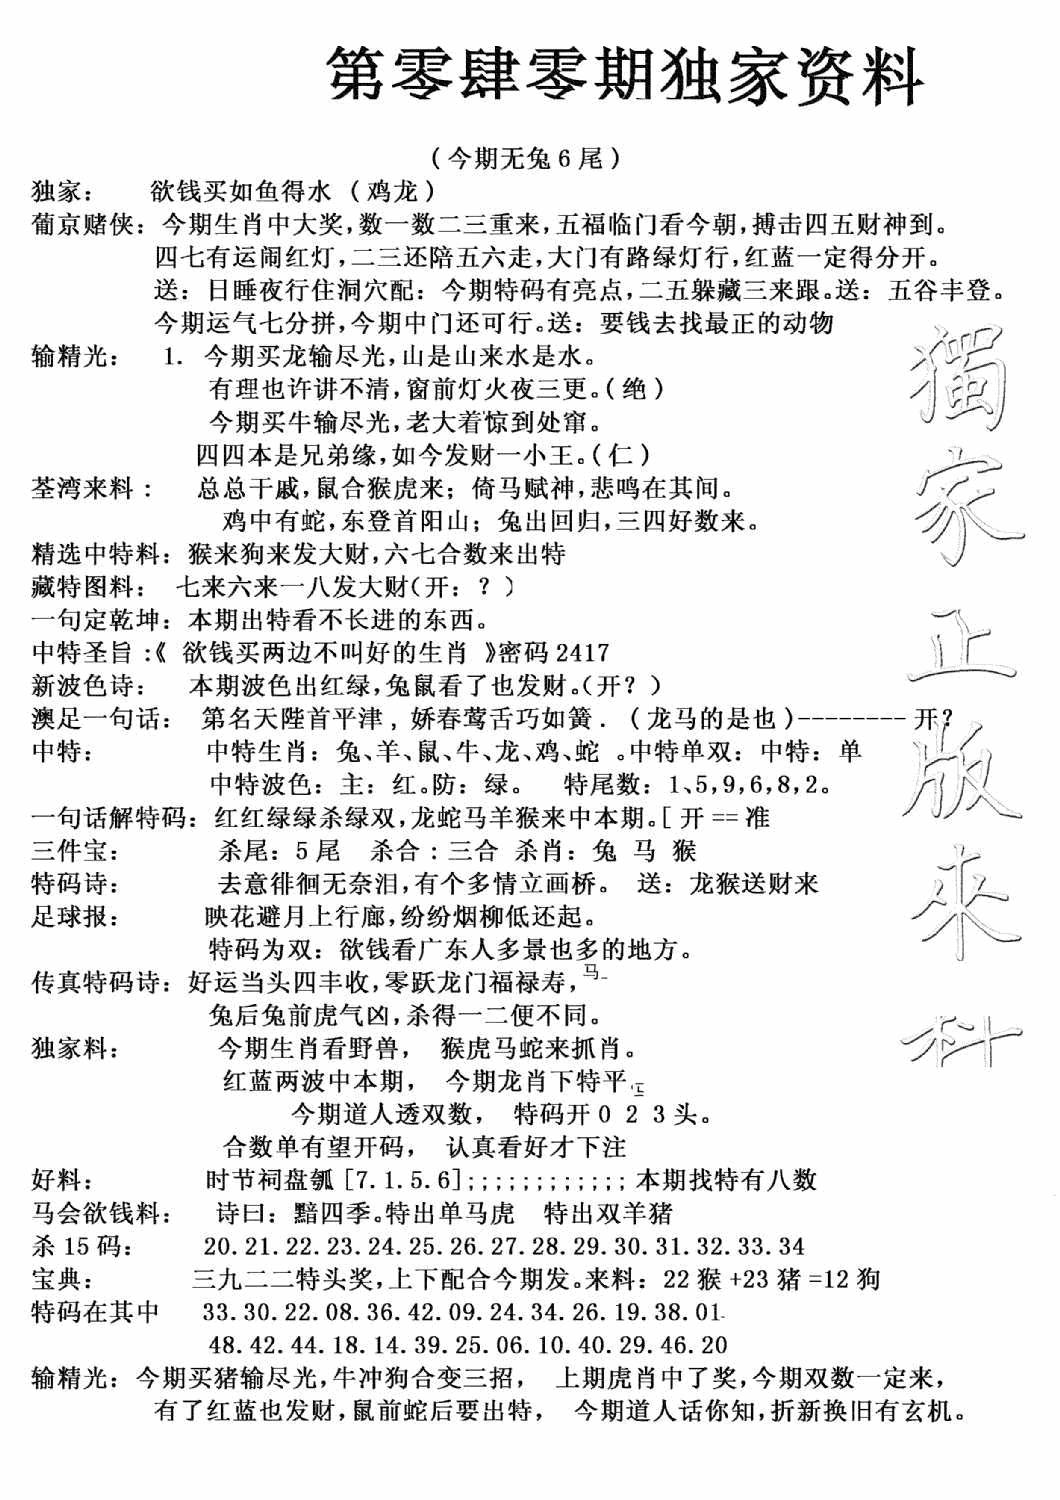 第零肆零期独家资料
（今期无兔6尾）
独家： 欲钱买如鱼得水（鸡龙）
葡京赌侠：今期生肖中大奖,数一数二三重来,五福临门看今朝,搏击四五财神到。
四七有运闹红灯,二三还陪五六走,大门有路绿灯行,红蓝一定得分开。
送：日睡夜行住洞穴配：今期特码有亮点,二五躲藏三来跟。送：五谷丰登。
今期运气七分拼,今期中门还可行。送：要钱去找最正的动物
输精光： 1. 今期买龙输尽光,山是山来水是水。
有理也许讲不清,窗前灯火夜三更。(绝)
今期买牛输尽光,老大着惊到处窜。
四四本是兄弟缘,如今发财一小王。(仁)
荃湾来料： 总总干戚,鼠合猴虎来；倚马赋神,悲鸣在其间。
鸡中有蛇,东登首阳山；兔出回归,三四好数来。
精选中特料：猴来狗来发大财,六七合数来出特
藏特图料： 七来六来一八发大财(开：？)
一句定乾坤：本期出特看不长进的东西。
中特圣旨:《 欲钱买两边不叫好的生肖 》密码2417
新波色诗： 本期波色出红绿,兔鼠看了也发财。(开？)
澳足一句话： 第名天陛首平津，娇春莺舌巧如簧．(龙马的是也)--------开？
中特： 中特生肖：兔、羊、鼠、牛、龙、鸡、蛇 。中特单双：中特：单
中特波色：主：红。防：绿。 特尾数：1、5,9,6,8,2。
一句话解特码：红红绿绿杀绿双,龙蛇马羊猴来中本期。[开==准
三件宝： 杀尾：5尾 杀合:三合 杀肖：兔 马 猴
特码诗： 去意徘徊无奈泪,有个多情立画桥。 送：龙猴送财来
足球报： 映花避月上行廊,纷纷烟柳低还起。
特码为双：欲钱看广东人多景也多的地方。
传真特码诗：好运当头四丰收,零跃龙门福禄寿,马-
兔后兔前虎气凶,杀得一二便不同。
独家料： 今期生肖看野兽， 猴虎马蛇来抓肖。
红蓝两波中本期， 今期龙肖下特平
今期道人透双数， 特码开0 2 3头。
合数单有望开码， 认真看好才下注
好料： 时节祠盘瓠[7.1.5.6];;;;;;;;;;;;本期找特有八数
马会欲钱料： 诗曰：黯四季。特出单马虎 特出双羊猪
杀15码： 20.21.22.23.24.25.26.27.28.29.30.31.32.33.34
宝典： 三九二二特头奖,上下配合今期发。来料：22猴+23猪=12狗
特码在其中 33.30.22.08.36.42.09.24.34.26.19.38.01.
48.42.44.18.14.39.25.06.10.40.29.46.20
输精光：今期买猪输尽光,牛冲狗合变三招， 上期虎肖中了奖,今期双数一定来，
有了红蓝也发财,鼠前蛇后要出特， 今期道人话你知,折新换旧有玄机。
獨家正版來料